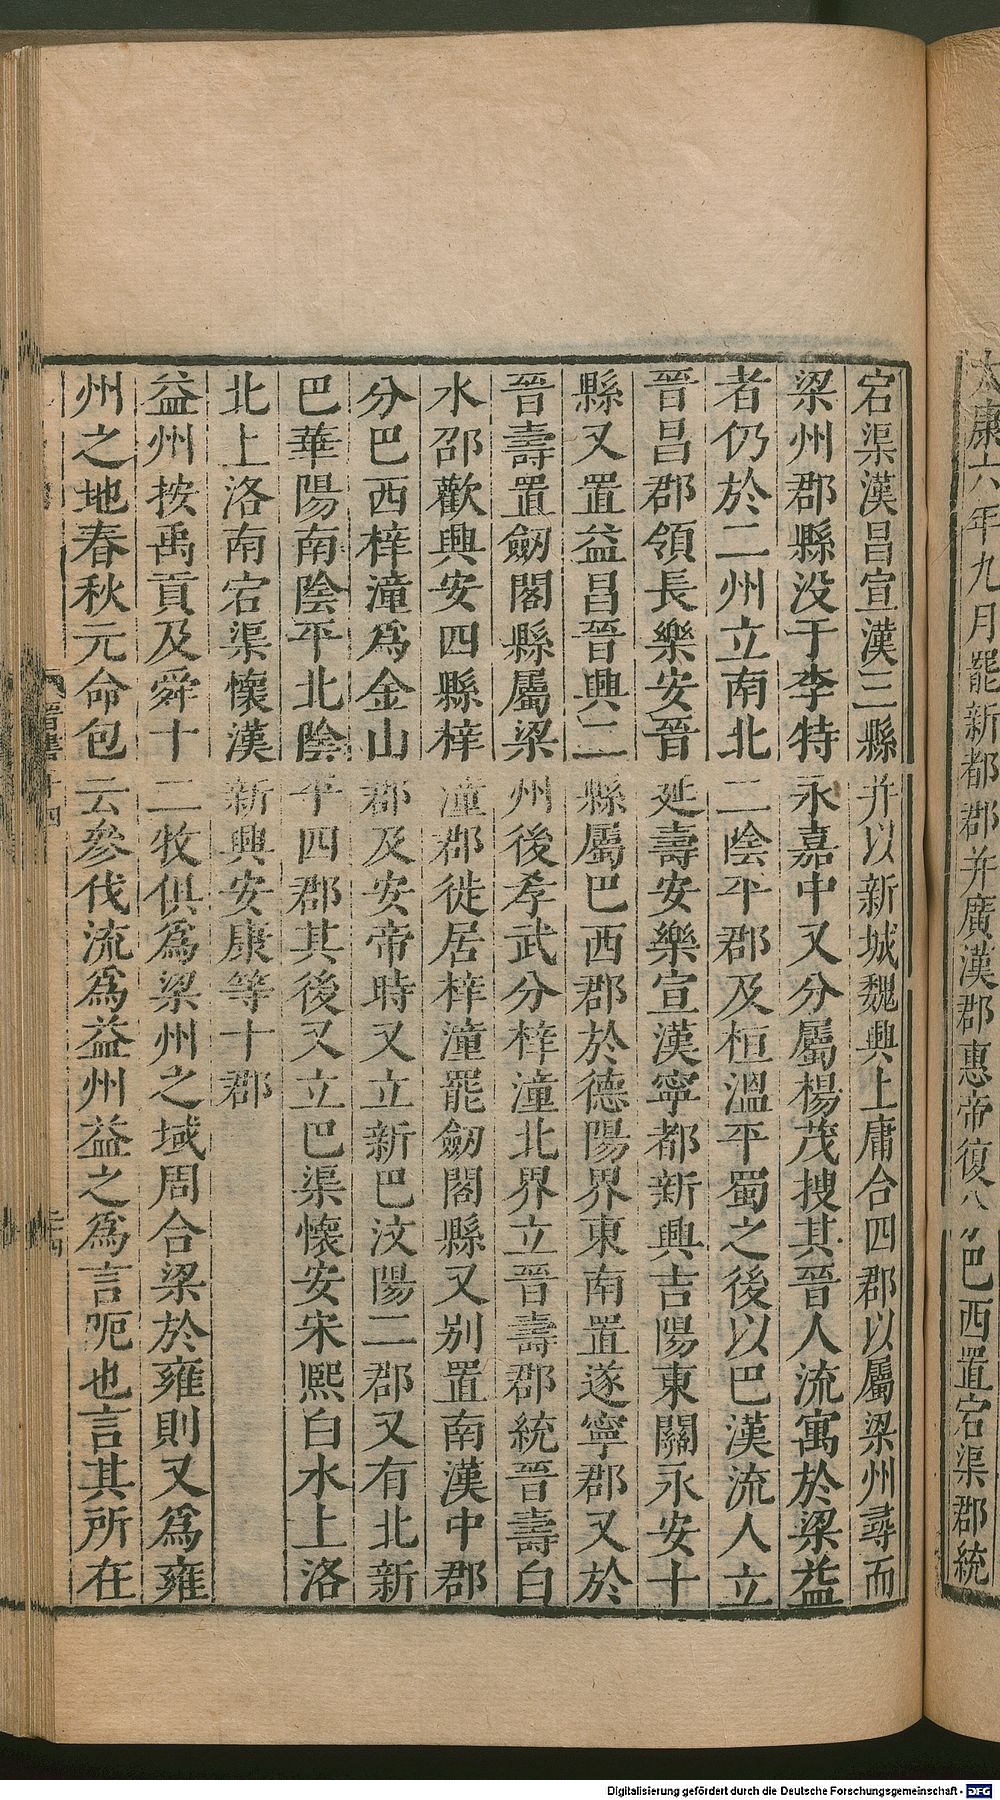 太康六年九月罷新都郡并廣漢郡惠帝復 巴西置宕渠郡統
宕渠漢昌宣漢三縣并以新城魏興上庸合四郡以屬梁州尋而
梁州郡縣没于李特永嘉中又分屬楊茂搜其晉人流寓於梁益
者仍於二州立南北二陰平郡及桓溫平蜀之後以巴漢流人立
晉昌郡領長樂安晉延壽安樂宣漢寧都新興吉陽東關永安十
縣又置益昌晉興二縣屬巴西郡於德陽界東南置遂寧郡又於
晉壽置劒閣縣屬梁州後孝武分梓潼北界立晉壽郡統晉壽白
水邵歡興安四縣梓潼郡徙居梓潼罷劒閣縣又別置南漢中郡
分巴西梓潼爲金山郡及安帝時又立新巴汶陽二郡又有北新
巴華陽南陰平北陰平四郡其後又立巴渠懷安宋熙白水上洛
北上洛南宕渠懷漢新興安康等十郡
益州按禹貢及舜十二牧俱爲梁州之域周合梁於雍則又爲雍
州之地春秋元命包云參伐流爲益州益之爲言呃也言其所在
晉書 十四
二四
Digitalisierung gefördert durch die Deutsche Forschungsgemeinschaft - DFG